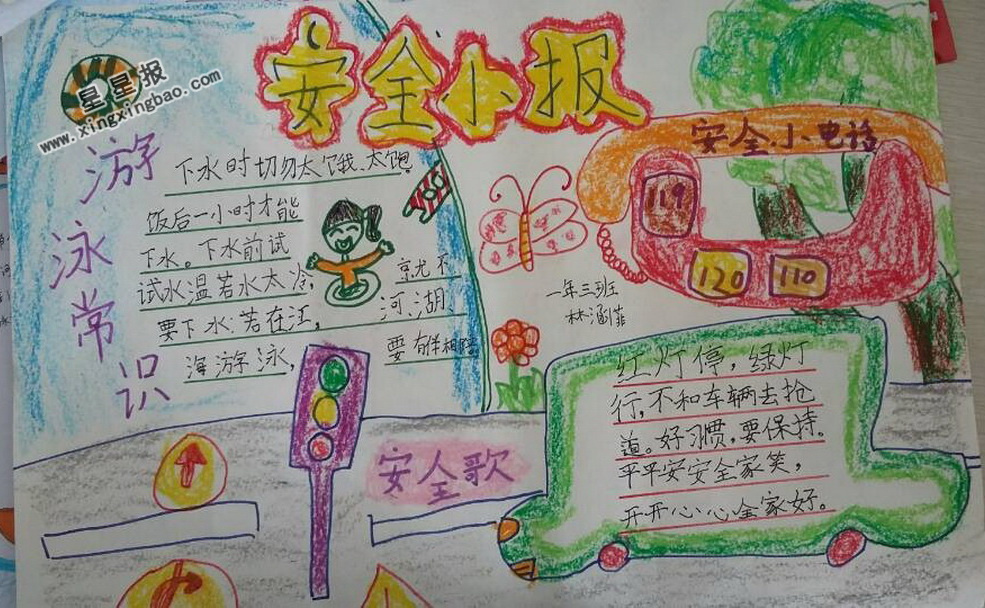 安全小报
星星报
www.xingxingbao.com
游泳常识
下水时切勿太饿、太饱。
饭后一小时才能
下水。下水前试
试水温若水太冷,
就不
要下水:若在江,河、湖、
海游泳,
要有伴相陪。
安全小电话
119
120
110
一年三班
林涵
安全歌
红灯停,绿灯
行,不和车辆去抢
道。好习惯,要保持。
平平安安全家笑,
开开心心全家好。